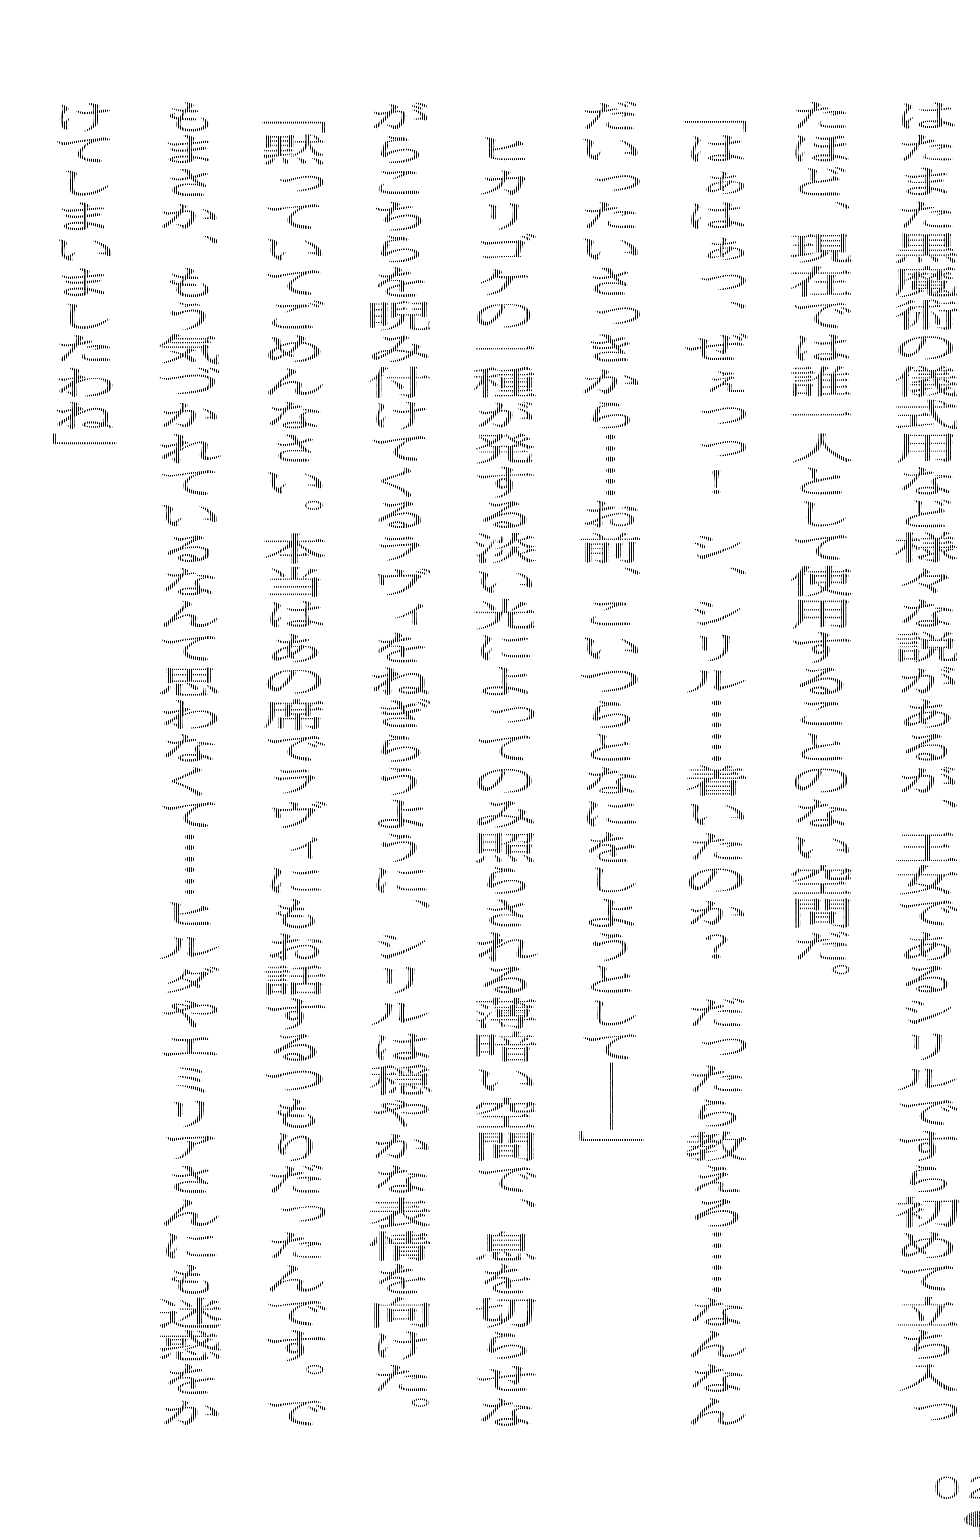 はたまた黒魔術の儀式用など様々な説があるが、王女であるシリルですら初めて立ち入っ
たほど、現在では誰一人として使用することのない空間だ。
「はぁはぁっ、ぜぇっっ！　シ、シリル……着いたのか？　だったら教えろ……なんなん
だいったいさっきから……お前、こいつらとなにをしようとして――」
　ヒカリゴケの一種が発する淡い光によってのみ照らされる薄暗い空間で、息を切らせな
がらこちらを睨み付けてくるラヴィをねぎらうように、シリルは穏やかな表情を向けた。
「黙っていてごめんなさい。本当はあの場でラヴィにもお話するつもりだったんです。で
もまさか、もう気づかれているなんて思わなくて……ヒルダやエミリアさんにも迷惑をか
けてしまいましたわね」
02